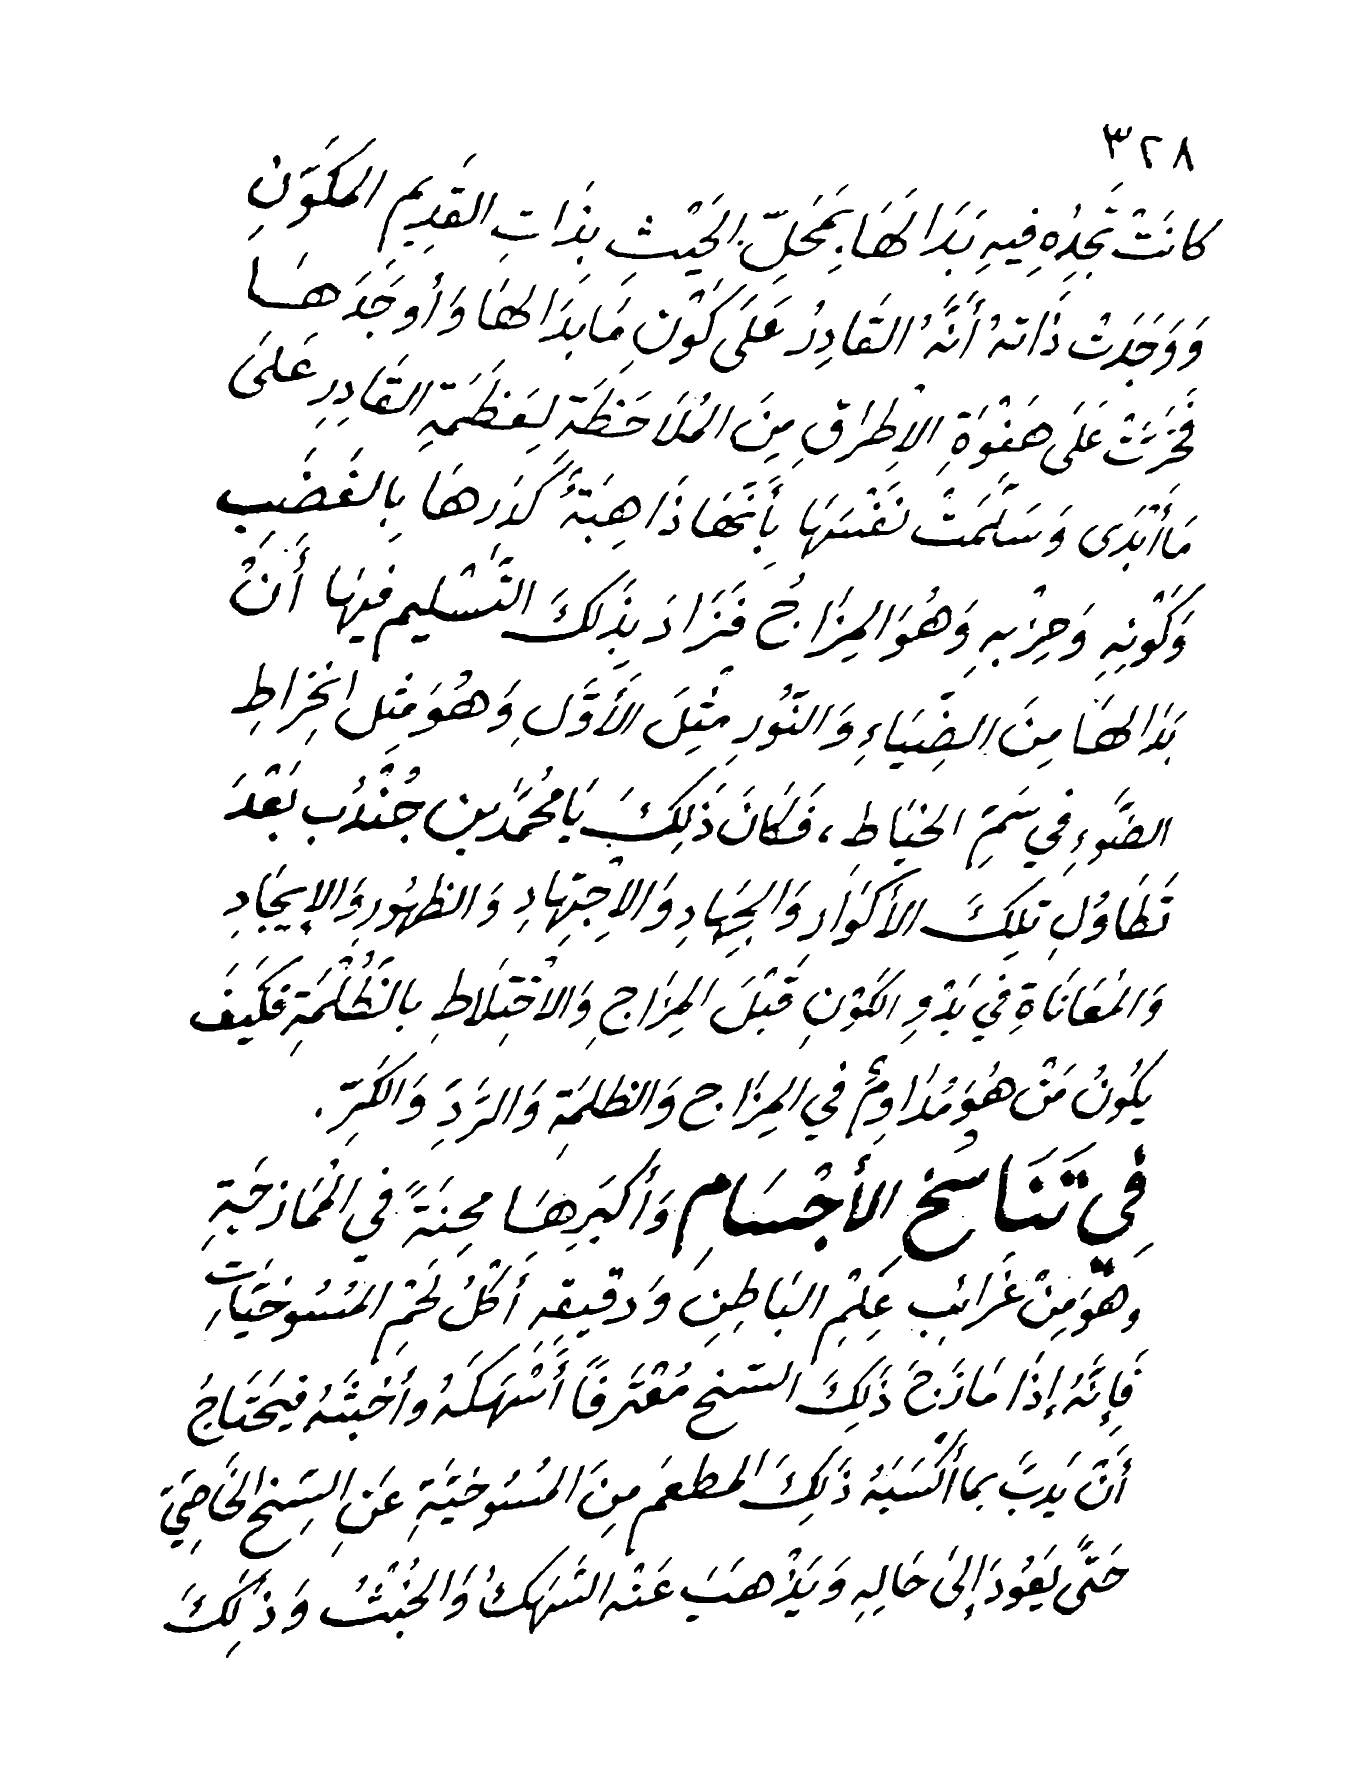 ٣٢٨
كانَتْ تَجِدُهِ فِيهِ بَدَا لَهَا بِمَحَلِّ الحَيْثِ بِذَاتِ القَدِيمِ المكَوَّنِ
وَوَجَدَتْ ذَاتهُ أَنَّهُ القَادِرُ عَلَى كَوْنِ مَا بَدَا لهَا وَأوجَدَهَا
فَخَرَّتْ عَلَى هَفْوَةِ الإِطْرَاقِ مِنَ المُلَاحَظَةِ لِعَظَمَةِ القَادِرِ عَلَى
مَا أبْدَى وَسَلَّمَتْ نَفْسَهَا بِأَنَّهَا ذَاهِبَةٌ كَدَرهَا بِالغَضَبِ
وَكَوْنِهِ وَحِزْبهِ وَهُوَ المِزَاجُ فَزَادَ بِذَلكَ التَّسْليم فيهَا أَنْ
بَدَا لهَا مِنَ الضِّيَاءِ وَالنُّورِ مِثْلَ الأَوَّلِ وَهُوَ مَثِل انخِرَاطِ
الضَّوءِ فِي سَمِّ الخيَاط ، فَكَانَ ذَلِكَ يَا مُحَمَّد بن جُنْدُب بَعْدَ
تَطَاوُلِ تلكَ الأكوَارِ وَالجِهَادِ وَالاِجْتِهَادِ وَالظهُورِ وَالإيجَادِ
وَالمُعَانَاةِ فِي بَدْوِ الكَوْنِ قَبْلَ المِزَاجِ وَالاخْتِلَاطِ بالظُّلْمَةِ فكَيفَ
يَكُونُ مَنْ هُوَ مُدَاوِمٌ في المِزَاج وَالظلمَةِ وَالرَّدِّ وَالكَرِّ .
فِي تَنَاسُخِ الأَجْسَامِ وَأكبَرِهَا مِحنَةً في المُمَازَجَةِ
وهُوَ مِنْ غَرَائبِ عِلمِ البَاطِنِ وَدقيقِهِ أَكْلُ لَحْمِ المَسُوخيَّاتِ
فَإِنَّهُ إِذَا مَازَجَ ذَلِكَ السّنخ مُغْتَرفًا أَنْهَكَهُ وأخبَثَهُ فيَحْتَاجُ
أَنْ يَدبَّ بما أكْسَبَهُ ذَلِكَ المطعَم مِنَ المسُوخيَّةِ عَنِ السِّنخِ الخَاصِيّ
حَتَّى يَعُودَ إلَى حَالِهِ وَيَذْهَبَ عَنْه النَّهكُ وَالخُبْثُ وَذَلِكَ